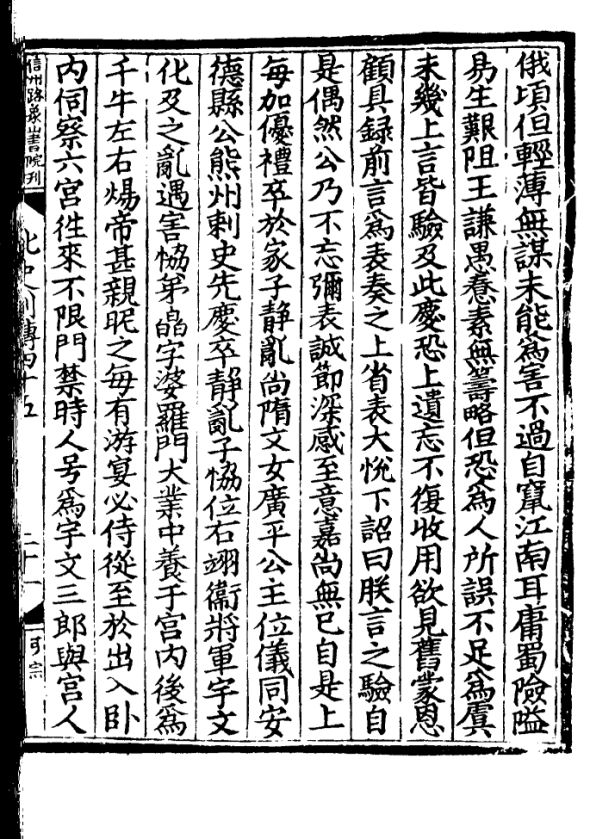 俄頃但輕薄無謀未能為害不過自竄江南耳庸蜀險隘
易生艱阻王謙愚惷素無籌略但恐為人所誤不足為虞
未幾上言皆驗及此慶恐上遺忘不復收用欲見舊蒙恩
顧具録前言為表奏之上省表大悅下詔曰朕言之驗自
是偶然公乃不忘彌表誠節深感至意嘉尚無已自是上
每加優禮卒於家子静亂尚隋文女廣平公主位儀同安
德縣公熊州刺史先慶卒静亂子恊位右翊衞將軍宇文
化及之亂遇害恊弟皛字婆羅門大業中養于宫内後為
千牛左右煬帝甚親昵之每有游宴必侍從至於出入卧
内伺察六宫徃來不限門禁時人号為宇文三郎與宫人
信州路象山書院刋
北史列傳四十五
二十一
可宗